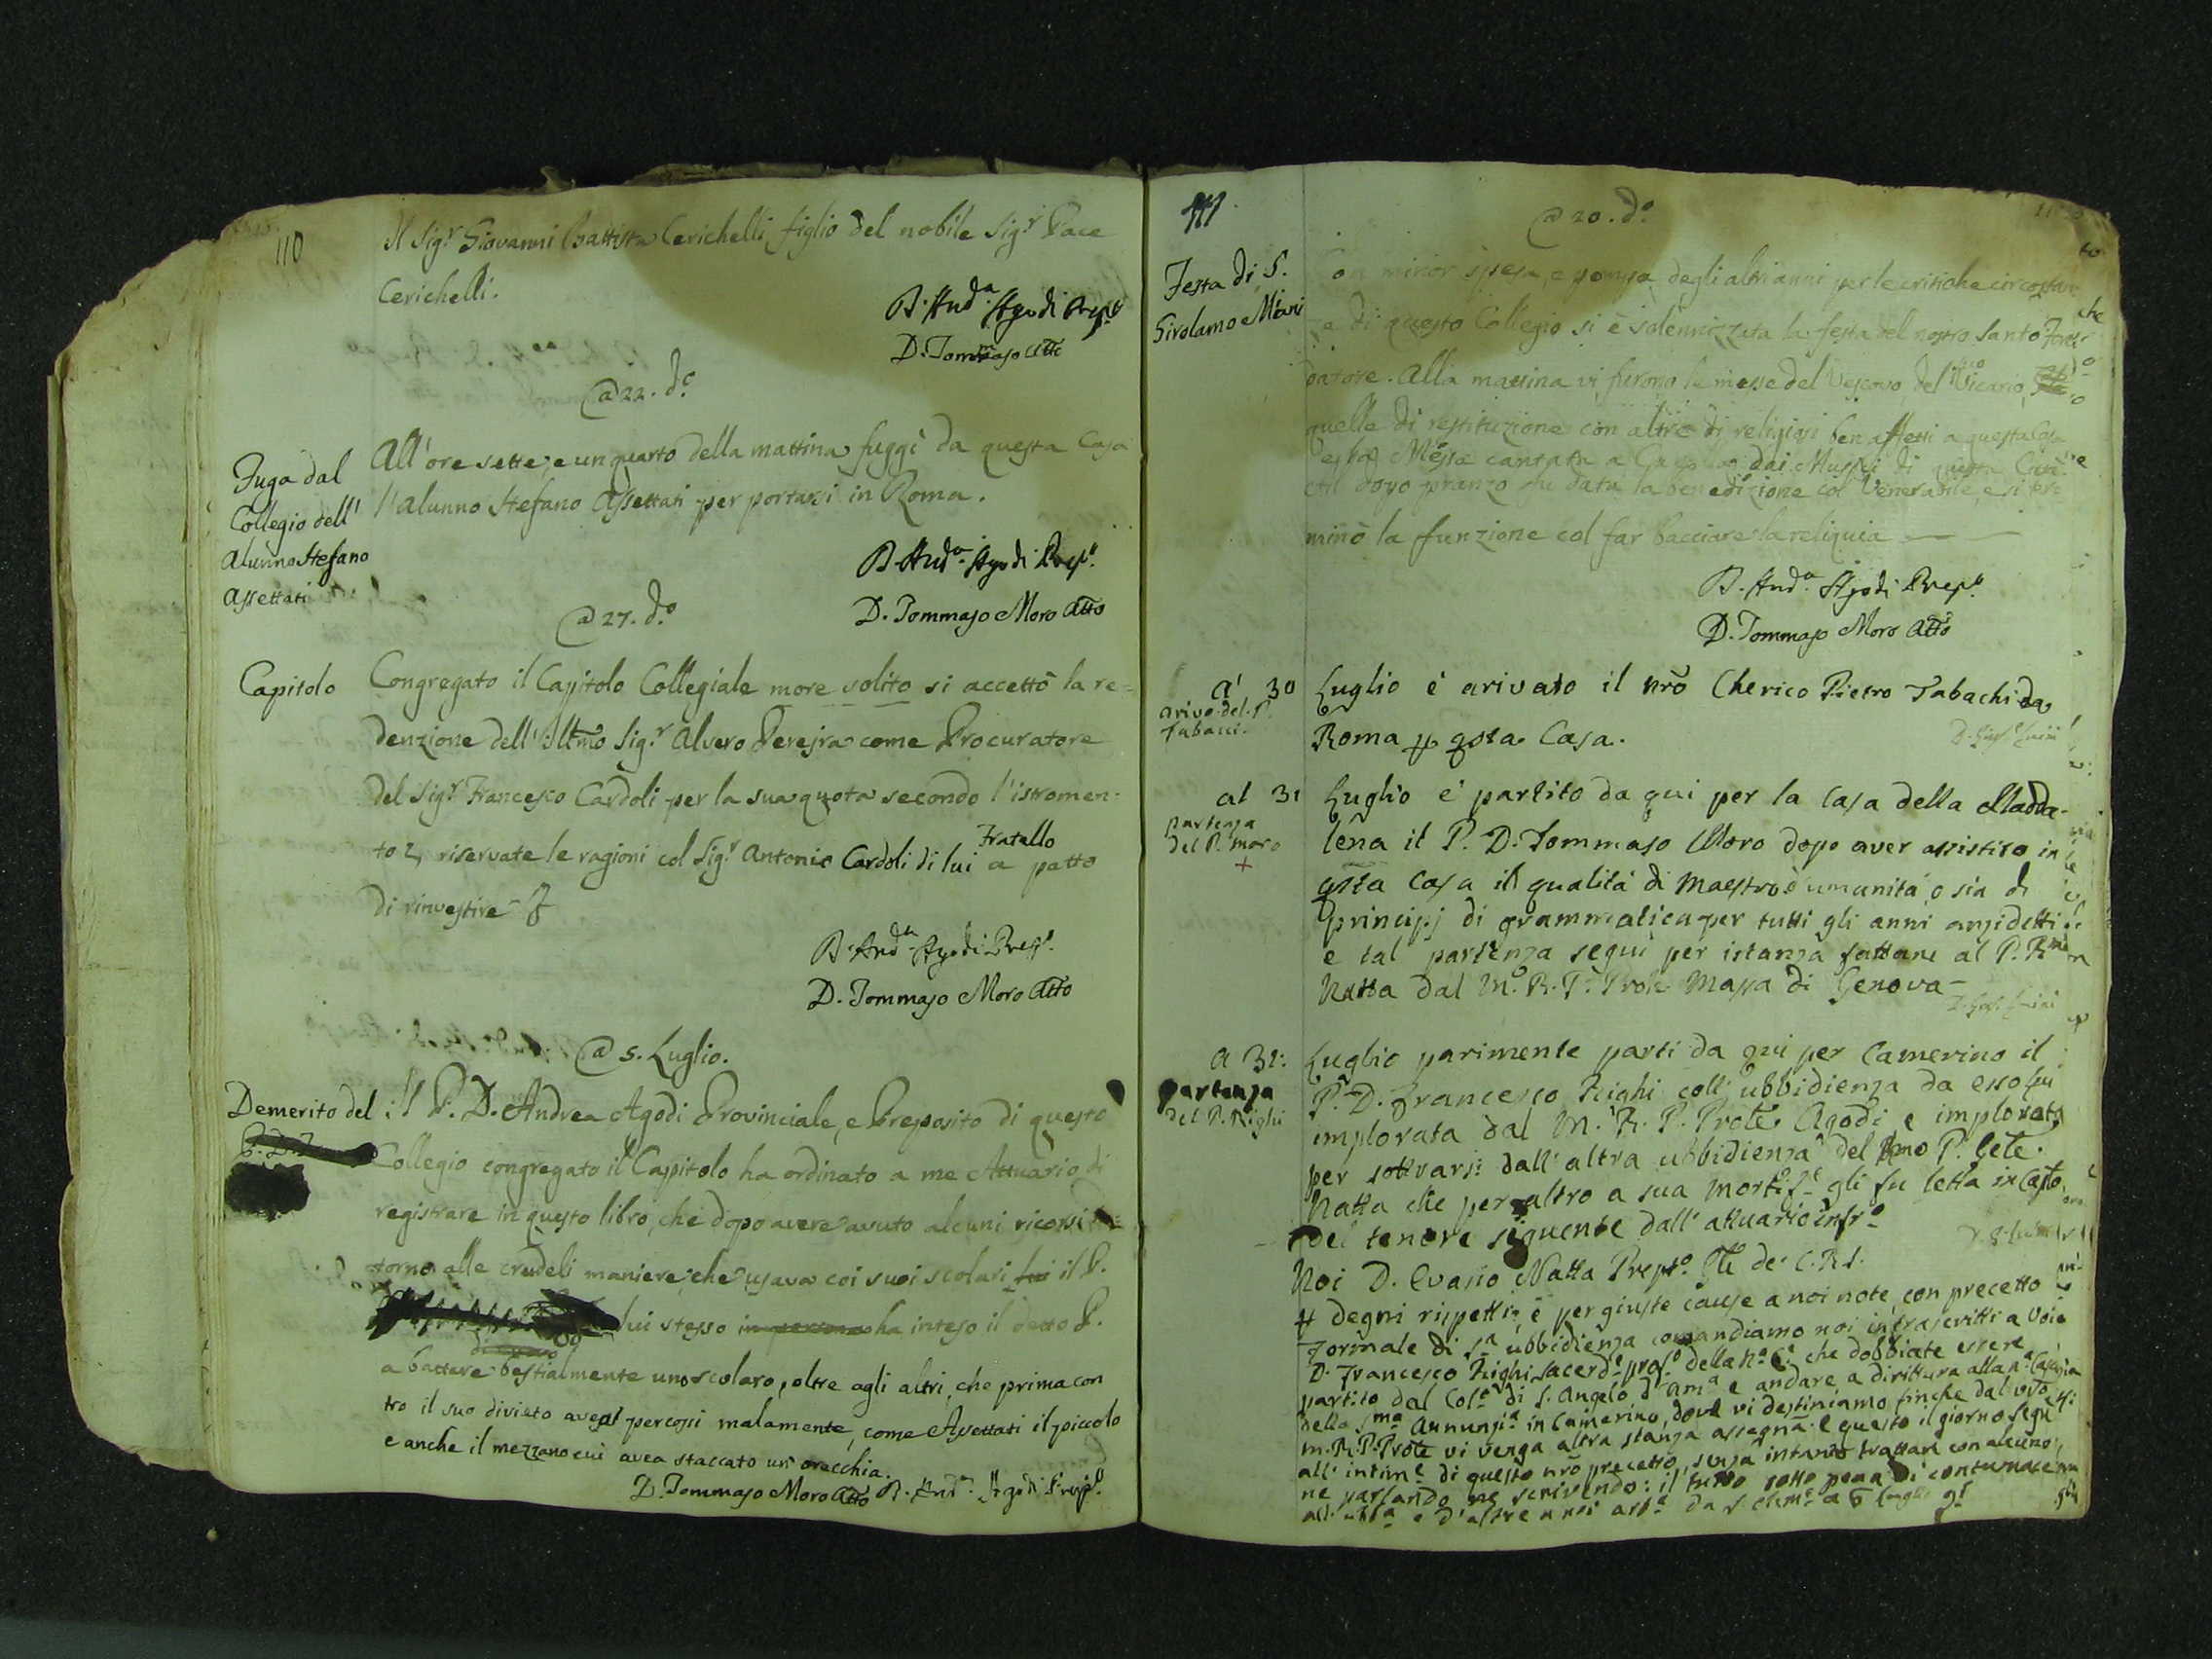 110
Il Sig.r Giovanni Battista Cerichelli figlio del nobile Sig.r Pace
Cerichelli.
D. And.a Agodi Prep.to
D. Tommaso Atto
@ 22. d.o
Fuga dal
Collegio dell'
Alunno Stefano
Assettati
All'ore sette, e un quarto della mattina fuggì da questa Casa
l'alunno Stefano Assettati per portarsi in Roma.
D. And.a Agodi Prep.to
D. Tommaso Moro Atto
@ 27. d.o
Capitolo
Congregato il Capitolo Collegiale more solito si accettò la re=
denzione dell'Illmo Sig.r Alvero Perejra come Procuratore
del Sig.r Francesco Cardoli per la sua quota secondo l'istromen-
to, riservate le ragioni col Sig.r Antonio Cardoli di lui Fratello a patto
di rinvestire
D. And.a Agodi Prep.to
D. Tommaso Moro Atto
@ 5. Luglio.
Demerito del
il P. D. Andrea Agodi Provinciale, e Preposito di questo
Collegio congregato il Capitolo ha ordinato a me Attuario di
registrare in questo libro, che dopo avere avuto alcuni ricorsi in=
torno alle crudeli maniere, che usava coi suoi scolari il P.
lui stesso in persona ha inteso il detto P.
a battere bestialmente uno scolaro, oltre agli altri, che prima con
tro il suo divieto avea percossi malamente, come Assettati il piccolo
e anche il mezzano cui avea staccato un orecchia.
D. Tommaso Moro Atto D. And.a Agodi Prep.to
111.
@ 20. d.o
Festa di S.
Girolamo Miani
Con minor spesa, e pompa degli altri anni per le critiche circostan=
ze di questo Collegio si è solennizzata la festa del nostro Santo Fon=
datore. Alla mattina vi furono le messe del Vescovo, del suo Vicario,
quelle di restituzione con altre di religiosi ben affetti a questa Casa
e la Messa cantata a dai Musici di questa Città
dopo pranzo fu data la benedizione col Venerabile, e si ter=
minò la funzione col far bacciare la reliquia
D. And.a Agodi Prep.to
D. Tommaso Moro Atto
a' 30
arivo del P.
Tabacci.
Luglio è arivato il nrõ Cherico Pietro Tabachi da
Roma p qsta Casa.
al 31
partenza
del P. Moro
+
Luglio è partito da qui per la Casa della Madda-
lena il P. D. Tommaso Moro dopo aver assistito in
qsta Casa in qualità di Maestro d'umanità, o sia di
principj di grammatica per tutti gli anni anzidetti
e tal partenza seguì per istanza fattane al P. Rmo
Natta dal M. R. P. Prole Massa di Genova-
a 31:
partenza
del P. Righi
Luglio parimente partì da qui per Camerino il
P. D. Francesco Righi coll' ubbidienza da esso lui
implorata dal M. R. P. Prole Agodi, e implorata
per sottrarsi dall' altra ubbidienza del Rmo P. Gele
Natta che per altro a sua mortif.e gli fu letta in Casto
del tenore siguente dall' attuario infr.o
Noi D. Evasio Natta Prep.to Gle de' C. R. S.
p degni rispetti, e per giuste cause a noi note, con precetto
formale di s.a ubbidienza comandiamo noi infrascritti a Voi
D. Francesco Righi Sacerd.e prof.o della n.a C.e che dobbiate essere
partito dal Col.o di S. Angelo d'Am.a e andare a dirittura alla n.a Casa
della Sma Annunzi.a in Camerino, dove vi destiniamo finche dal vrõ
m. R. P. Prole vi venga altra stanza assegna.a e questo il giorno segu.e
all' intim.e di questo nrõ precetto, senza intanto trattare con alcuno,
ne parlando ne scrivendo: il tutto sotto pena di contumace